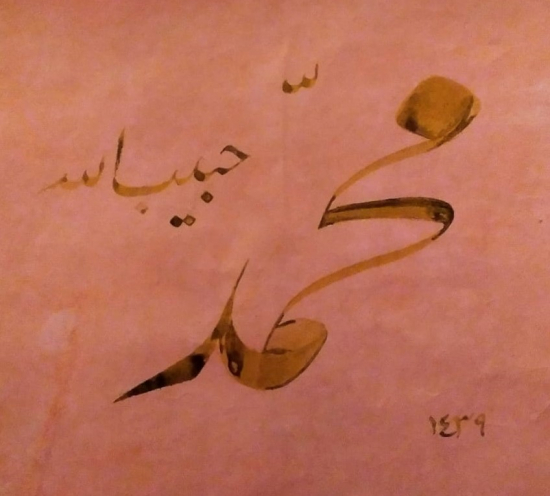 محمّد
حبيب الله
١٤٣٩